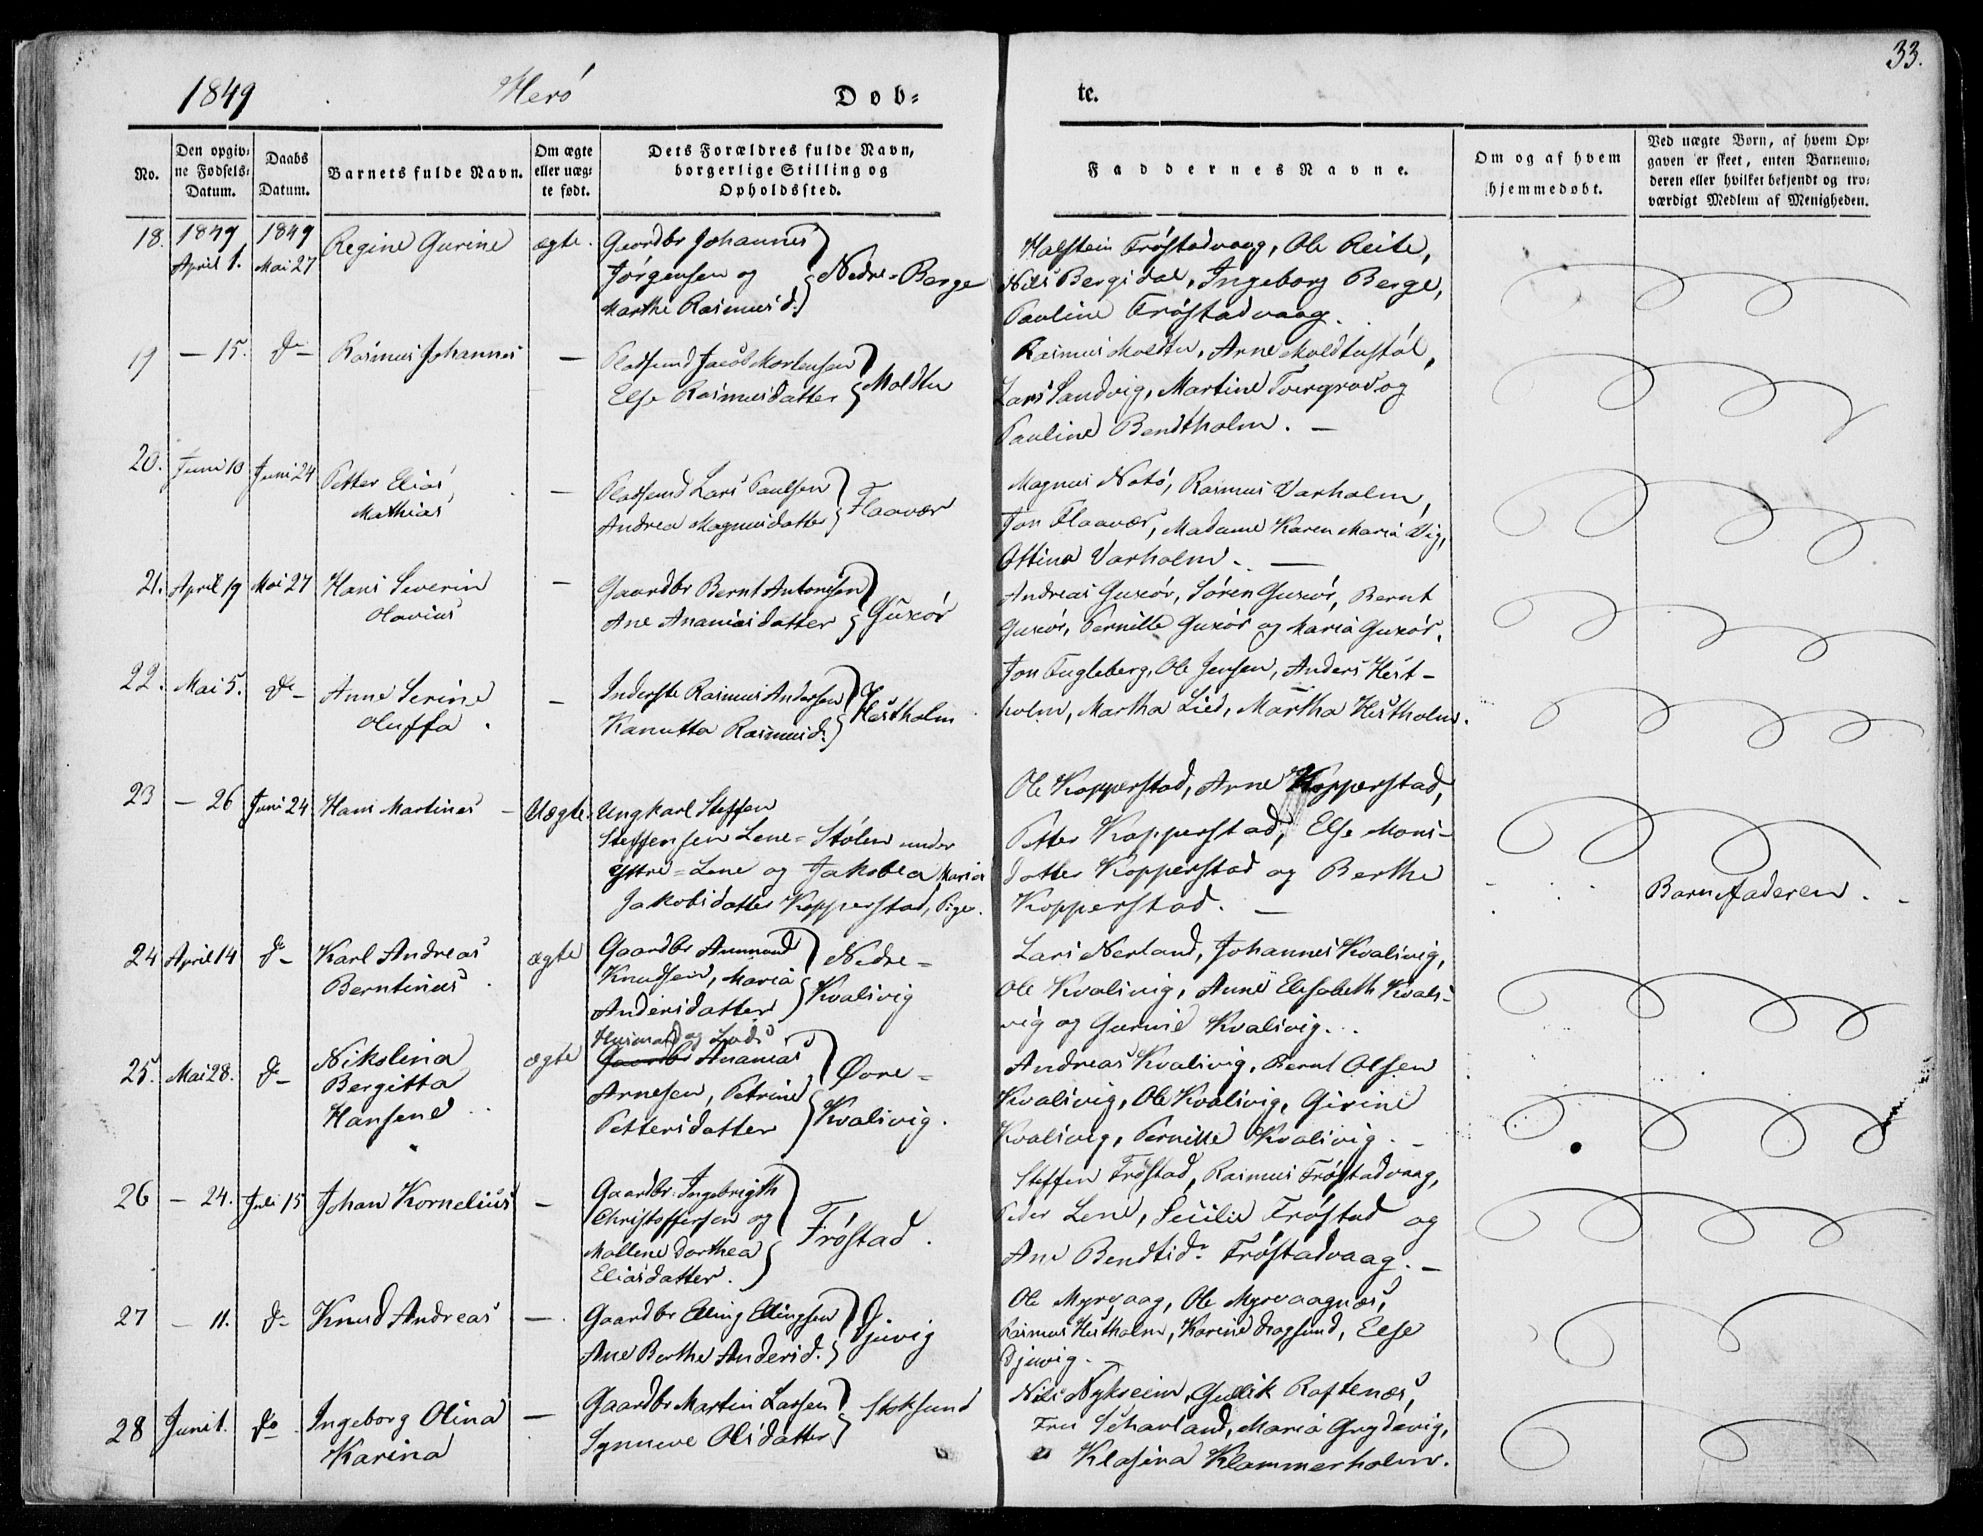 33.
1849 Herö Döb- te.
No.
Den opgiv-
ne Fødsels-
Datum.
Daabs
Datum.
Barnets fulde Navn.
Om ægte
eller uæg-
te født.
Dets Forældres fulde Navn,
borgerlige Stilling og
Opholdssted.
Faddernes Navne.
Om og af hvem
hjemmedøbt.
Ved uægte Børn, af hvem Op-
gaven er skeet, enten Barnemo-
deren eller hvilket bekjendt og tro-
værdigt Medlem af Menigheden.
18. 1849 April 1. 1849 Mai 27 Regine Gurine ægte.
Gaardbr Johannes
Jörgensen og
Marthe Rasmusd.
Nedre-Berge
Halstein Fröstadvaag, Ole Reite,
Nils Bergsdal, Ingeborg Berge,
Pauline Fröstadvaag.
19 — 15. do— Rasmus Johannes —
Pladsmd Jacob Mortensen
Else Rasmusdatter
Moldtu
Rasmus Moldtu, Arne Moldtustöl,
Lars Sandvig, Martine Tvergrov og
Pauline Bendtholm. —
20. Juni 10 Juni 24 Petter Elias
Mathias —
Pladsmd Lars Paulsen
Andrea Magnusdatter
Flaavær
Magnus Notö, Rasmus Varholm,
Jon Flaavær, Madame Karen Maria Vig,
Ottine Varholm. —
21. April 19 Mai 27 Hans Severin
Olavius —
Gaardbr Bernt Antonsen
Ane Ananiasdatter
Gusær
Andreas Gusör, Sören Gusör, Bernt
Gusör, Pernille Gusör og Maria Gusör.
22. Mai 5. do— Anne Serine
Oluffa. —
Inderste Rasmus Andersen
Kanutta Rasmusd.
Hestholm
Jon Fugleberg, Ole Jensen, Anders Hest-
holm, Martha Lied, Martha Hestholm.
23 — 26 Juni 24 Hans Martines — Uægte.
Ungkarl Steffen
Steffensen Lene-Stölen under
Yttre-Lene og Jakobea Maria
Jakobsdatter Kopperstad, Pige.
Ole Kopperstad, Arne Kopperstad,
Petter Kopperstad, Else Mons-
datter Kopperstad og Berthe
Kopperstad. —
Barnefaderen.
24 April 14 do— Karl Andreas
Berntinus. ægte
Gaardbr Amund
Knudsen, Maria
Andersdatter
Nedre-
Kvalsvig
Lars Nerland, Johannes Kvalsvig,
Ole Kvalsvig, Anne Elisabeth Kvals-
vig og Gurine Kvalsvig.
25. Mai 28. do— Nikolina
Bergitta
Hansene ægte
Husmand og Lods
Gaardbr Ananias
Arnesen, Petrine
Pettersdatter
Øvre-
Kvalsvig.
Andreas Kvalsvig, Bernt Olsen
Kvalsvig, Ole Kvalsvig, Girine
Kvalsvig, Pernille Kvalsvig. —
26 — 24. Juli 15 Johan Kornelius —
Gaardbr. Ingebrigth
Christoffersen og
Mallene Dorthea
Eliasdatter.
Fröstad.
Steffen Fröstad, Rasmus Fröstadvaag,
Peder Lene, Secilie Fröstad og
Ane Bendtsdr Fröstadvaag. —
27 — 11. do— Knud Andreas —.
Gaardbr Elling Ellingsen
Ane Berthe Andersd.
Djuvig
Ole Myrvaag, Ole Myrvaagnæs,
Rasmus Hestholm, Karine Dragsund, Else
Djuvig. —
28 Juni 1. do Ingeborg Olina
Karina —
Gaardbr Martin Larsen
Synneve Olsdatter
Stoksund
Nils Nykreim, Gullik Røftenæs,
Fru Schavland, Maria Grydevig,
Klasina Klammerholm.